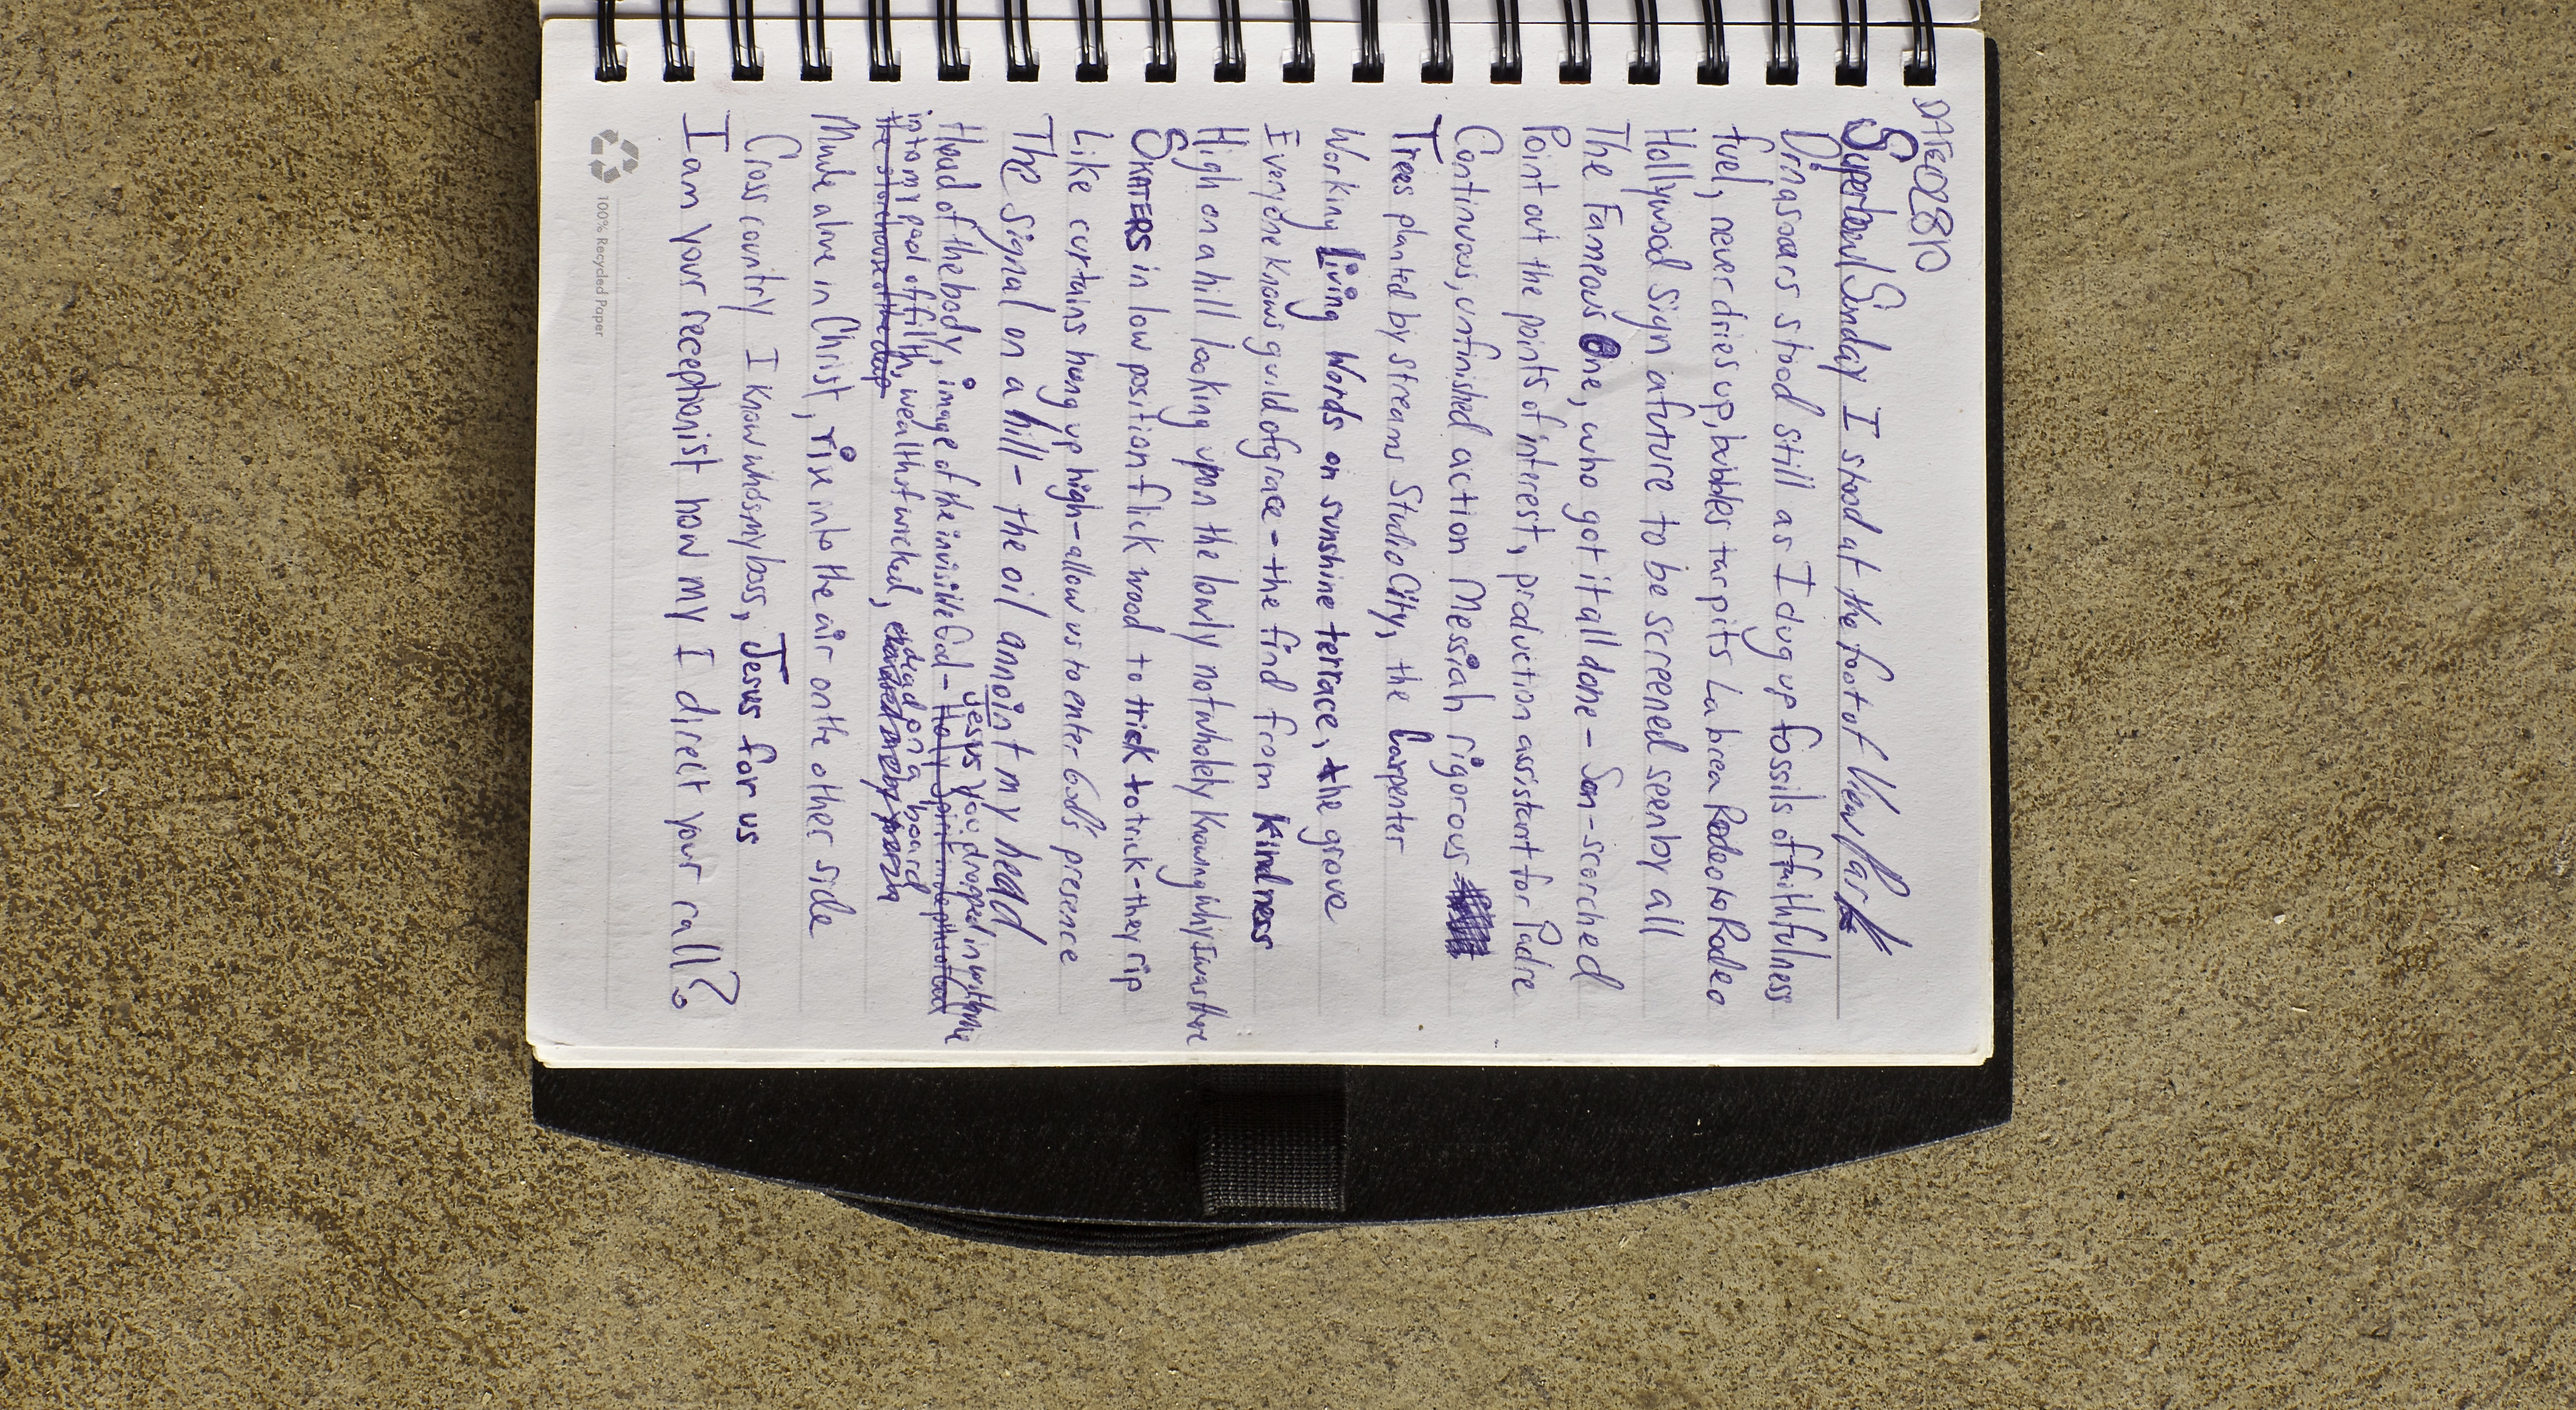 DATE 020810
Superbowl Sunday I stood at the foot of View Park
Dinasoars stood still as I dug up fossils of faithfulness
fuel, never dries up, bubbles tar pits La brea Rodeo to Rodeo
Hollywood sign a future to be screened seen by all
The Fameous One, who got it all done - Son-scorched
Point out the points of interest, production assistant for Padre
Continuous, unfinished action Messiah rigorous
Trees planted by streams Studio City, the Carpenter
Working Living Words on sunshine terrace, the grove
Everyone knows guild of grace - the find from kindness
High on a hill looking upon the lowly not wholely knowing why I was there
SKATERS in low position flick wood to trick to trick - they rip
Like curtains hung up high - allow us to enter God's presence
The signal on a hill - the oil annoint my head
Jesus You dropped in with me
Head of the body, image of the invisible God - Holy Spirit in depths of
into my pool of filth, wealth of wicked, dead on a board
the storehouse of the
Made alive in Christ, rise into the air on the other side
Cross country I know who's my boss, Jesus for us
I am your receptionist how my I direct your call?
100% Recycled Paper